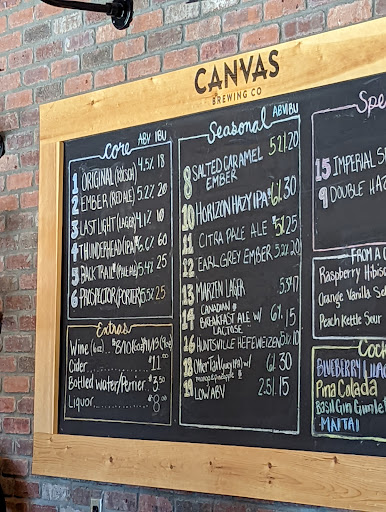 CANVAS
BREWING CO
Core ABV IBU
1 ORIGINAL 4.5% 18
2 EMBER (RED INE) 5.2% 20
3 LAST LIGHT (LAGER) 4.1% 10
4 THUNDERHEAD (IPA) 6.0% 60
5 BACK TRAIL (PALE ALE) 5.4% 25
6 PROSPECTOR (PORTER) 5.5% 25
Extras
Wine
Cider $11.00
Bottled water/Perrier $3.50
Liquor $8.00
Seasonal ABV IBU
8 SALTED CARAMEL EMBER 5.2% 20
10 HORIZON HAZY IPA 6% 30
11 CITRA PALE ALE 5% 25
12 EARL GREY EMBER 5.2% 20
13 MARZEN LAGER 5.8% 17
14 CANADIAN BREAKFAST ALE W/ LACTOSE 6% 15
16 HUNTSVILLE HEFEWEIZEN 5% 10
18 Other Tail (Hazy IPA) w/ mango & pineapple 6% 30
19 LOW ABV 2.5% 15
Spe
15 IMPERIAL S
9 DOUBLE HAZ
FROM A C
Raspberry Hibisc
Orange Vanilla Sel
Peach Kettle Sour
Cock
BLUEBERRY LILAC
Pina Colada
Basil Gin Gimlet
MAITAI